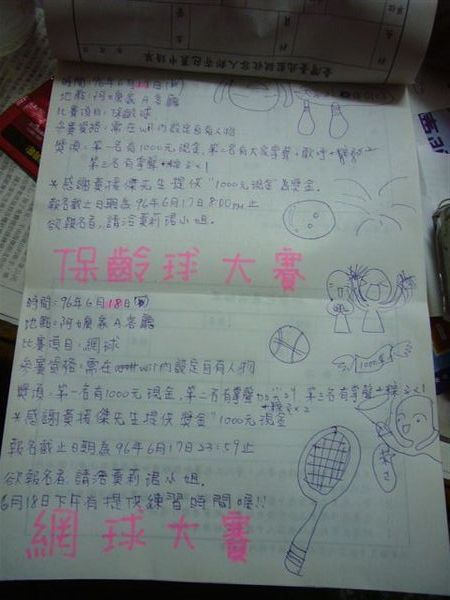 時間：96年6月17日(日)
地點：阿嬤家A客廳
比賽項目：保齡球
參賽資格：需在wii內設定自有人物
獎項：第一名有1000元現金，第二名有大家掌聲+歡呼+粽子×2
第三名有掌聲+粽子×1
*感謝黃援傑先生提供"1000元現金為獎金．
報名截止日期為96年6月17日8:00PM止
欲報名者，請洽黃莉珺小姐．
保齡球大賽
時間：96年6月18日
地點：阿嬤家A客廳
比賽項目：網球
參賽資格：需在wii內設定自有人物
獎項：第一名有1000元現金，第二名有掌聲
+粽子×2
第三名有掌聲+粽子×1
*感謝黃援傑先生提供獎金"1000元現金
報名截止日期為96年6月17日23:59止
欲報名者，請洽黃莉珺小姐．
6月18日下午有提供練習時間喔!!
網球大賽
1000元
2